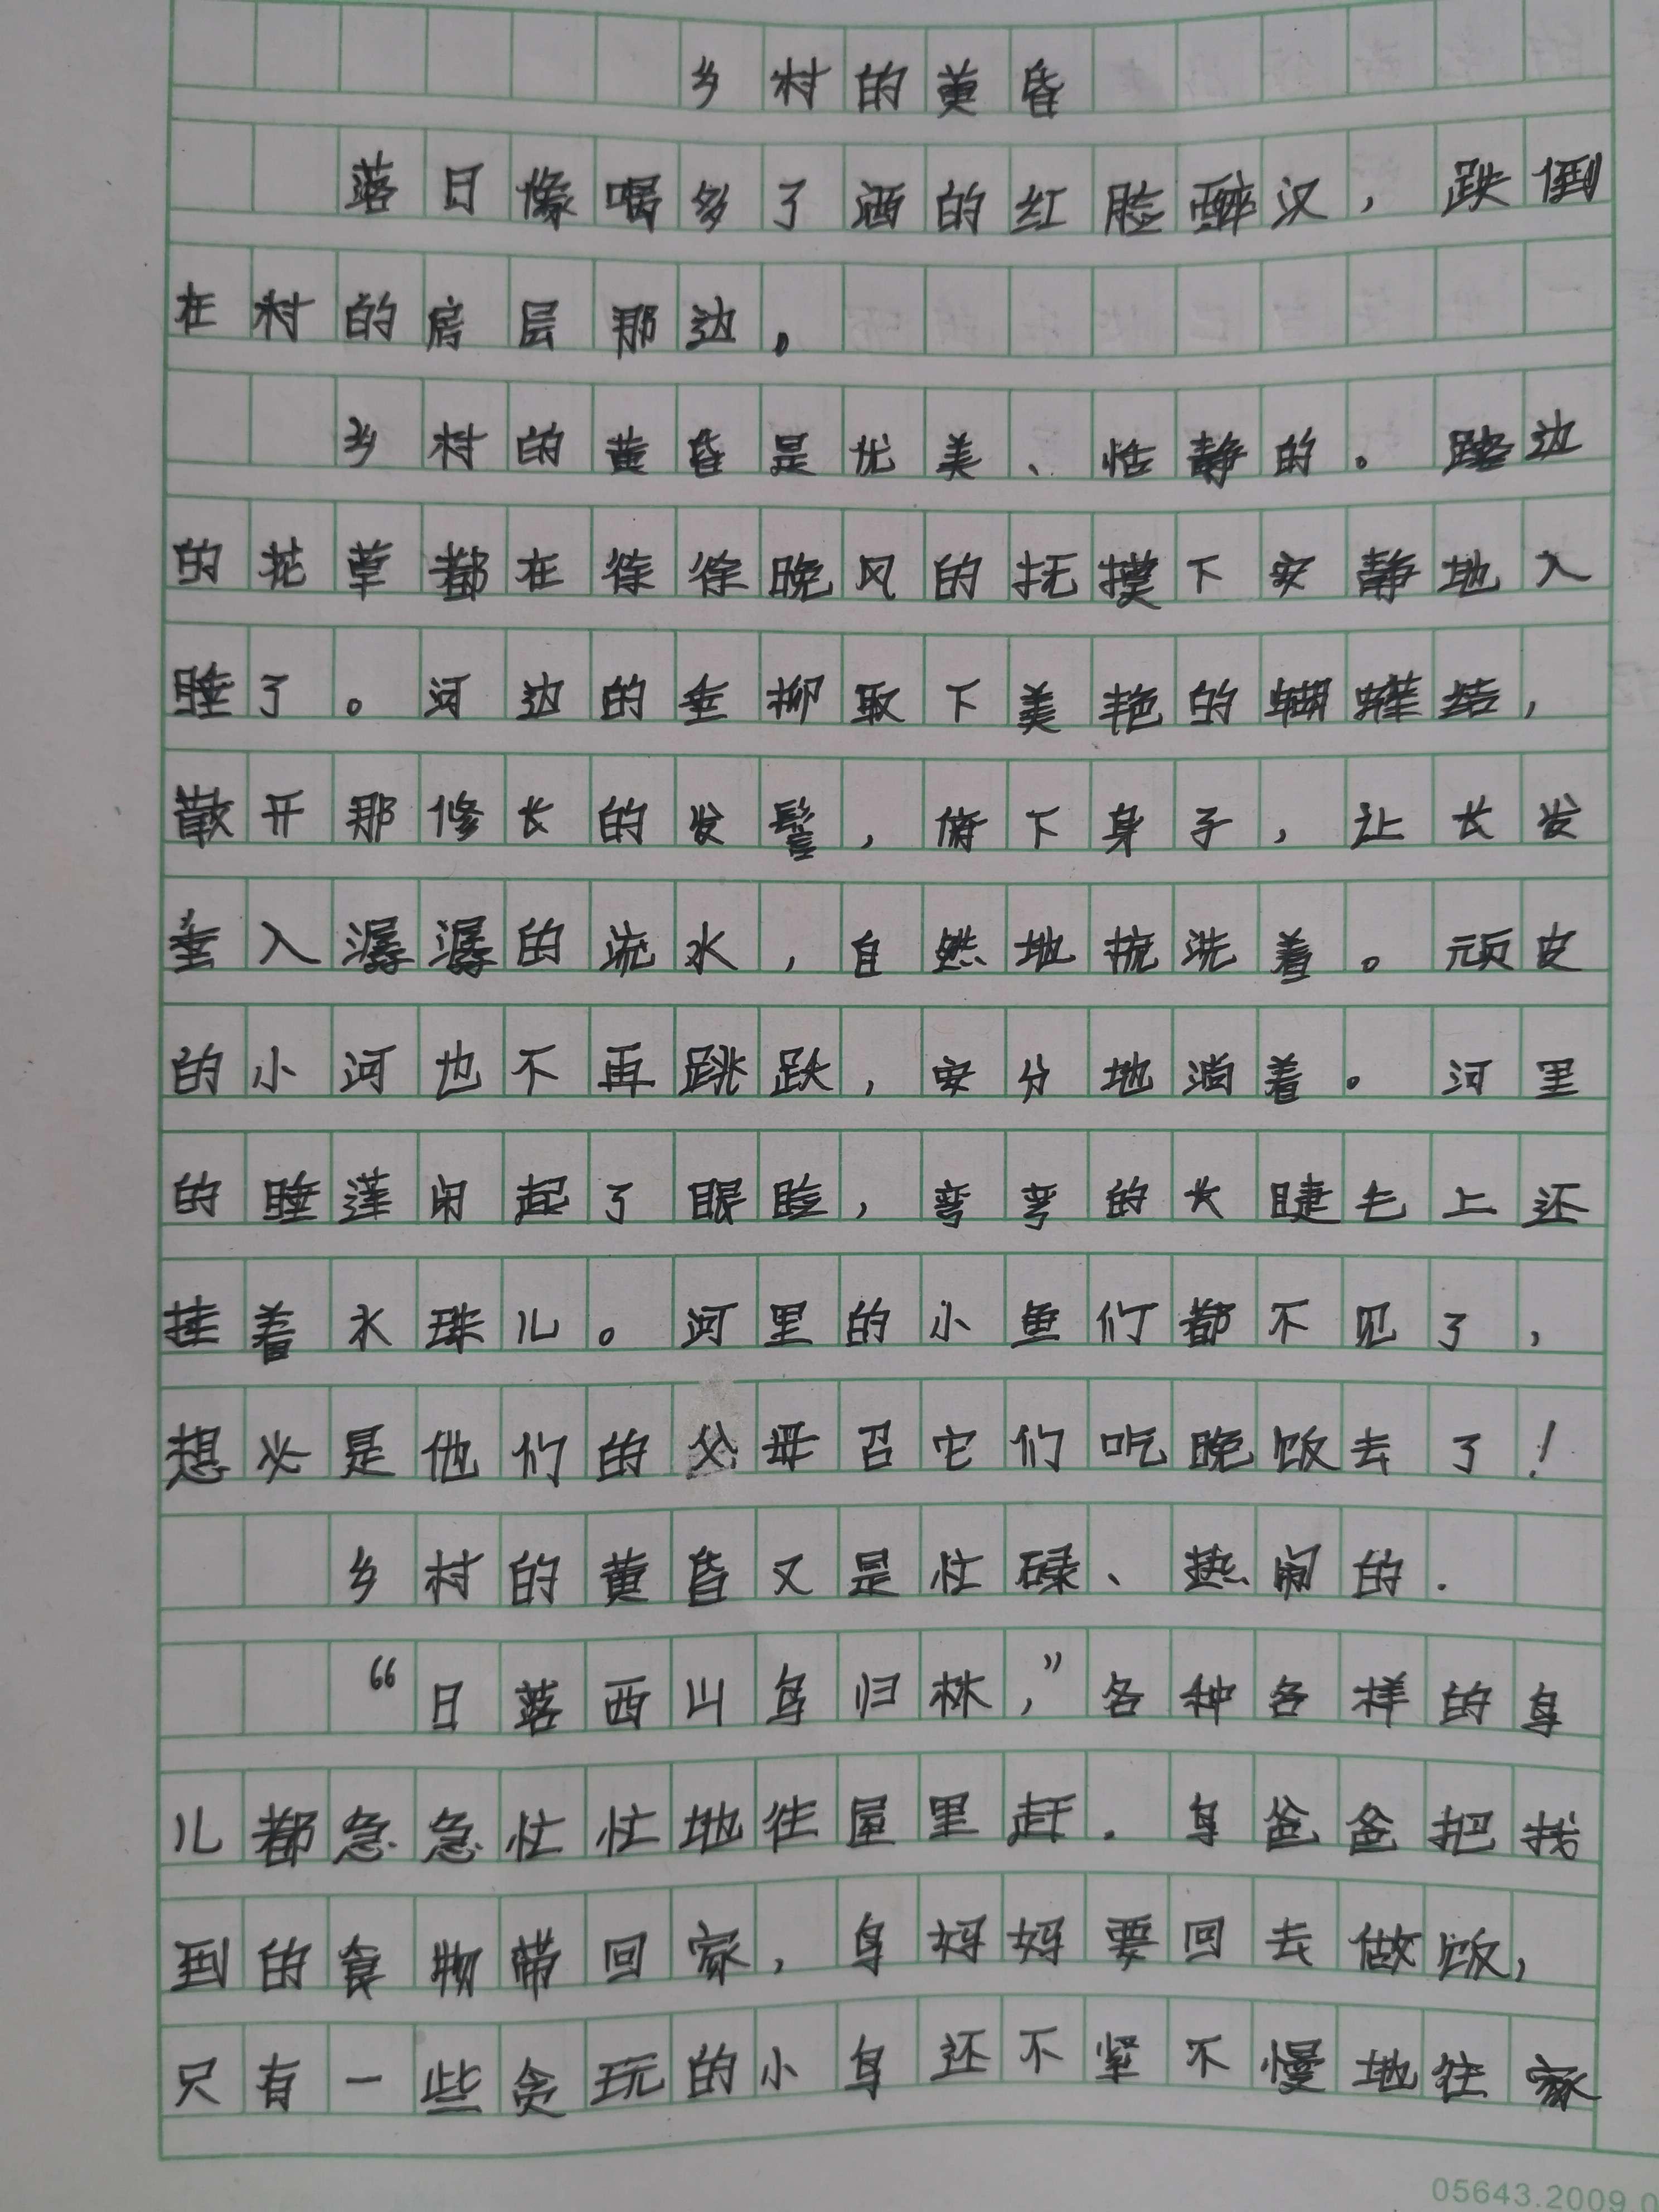 乡村的黄昏
落日像喝多了酒的红脸醉汉，跌倒
在村的房层那边。
乡村的黄昏是优美、恬静的。路边
的花草都在徐徐晚风的抚摸下安静地入
睡了。河边的垂柳取下美艳的蝴蝶结，
散开那修长的发髻，俯下身子，让长发
垂入潺潺的流水，自然地梳洗着。顽皮
的小河也不再跳跃，安分地淌着。河里
的睡莲闭起了眼睑，弯弯的长睫毛上还
挂着水珠儿。河里的小鱼们都不见了，
想必是他们的父母召它们吃晚饭去了！
乡村的黄昏又是忙碌、热闹的.
“日落西山鸟归林，”各种各样的鸟
儿都急急忙忙地往屋里赶.鸟爸爸把找
到的食物带回家，鸟妈妈要回去做饭，
只有一些贪玩的小鸟还不紧不慢地往家
05643.2009.0